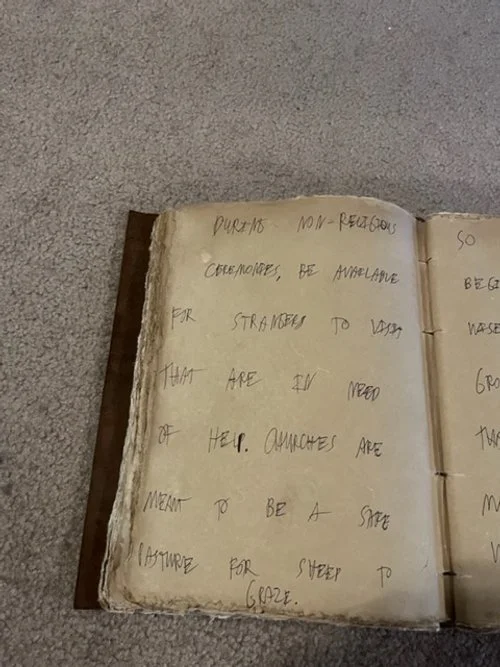 DURING NON-RELIGIOUS
CEREMONIES, BE AVAILABLE
FOR STRANGERS TO VISIT
THAT ARE IN NEED
OF HELP. CHURCHES ARE
MEANT TO BE A SAFE
PASTURE FOR SHEEP TO
GRAZE.
SO